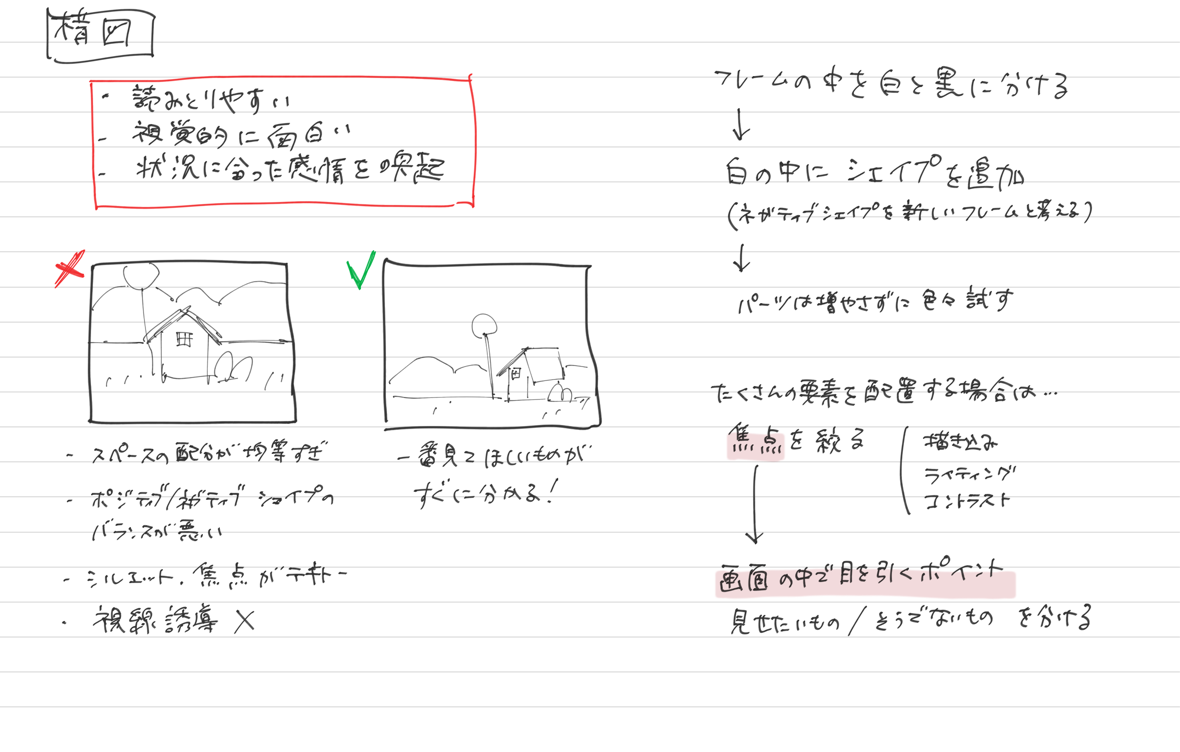 構図
・読みとりやすい
- 視覚的に面白い
- 状況に合った感情を喚起
- スペースの配分が均等すぎ
- ポジティブ/ネガティブ シェイプの
バランスが悪い
- シルエット、焦点がテキトー
・視線誘導 ×
一番見てほしいものが
すぐに分かる!
フレームの中を白と黒に分ける
↓
白の中に シェイプを追加
(ネガティブシェイプを新しいフレームと考える)
↓
パーツは増やさずに色々試す
たくさんの要素を配置する場合は…
焦点を絞る
描き込み
ライティング
コントラスト
↓
画面の中で目を引くポイント
見せたいもの/そうでないもの を分ける